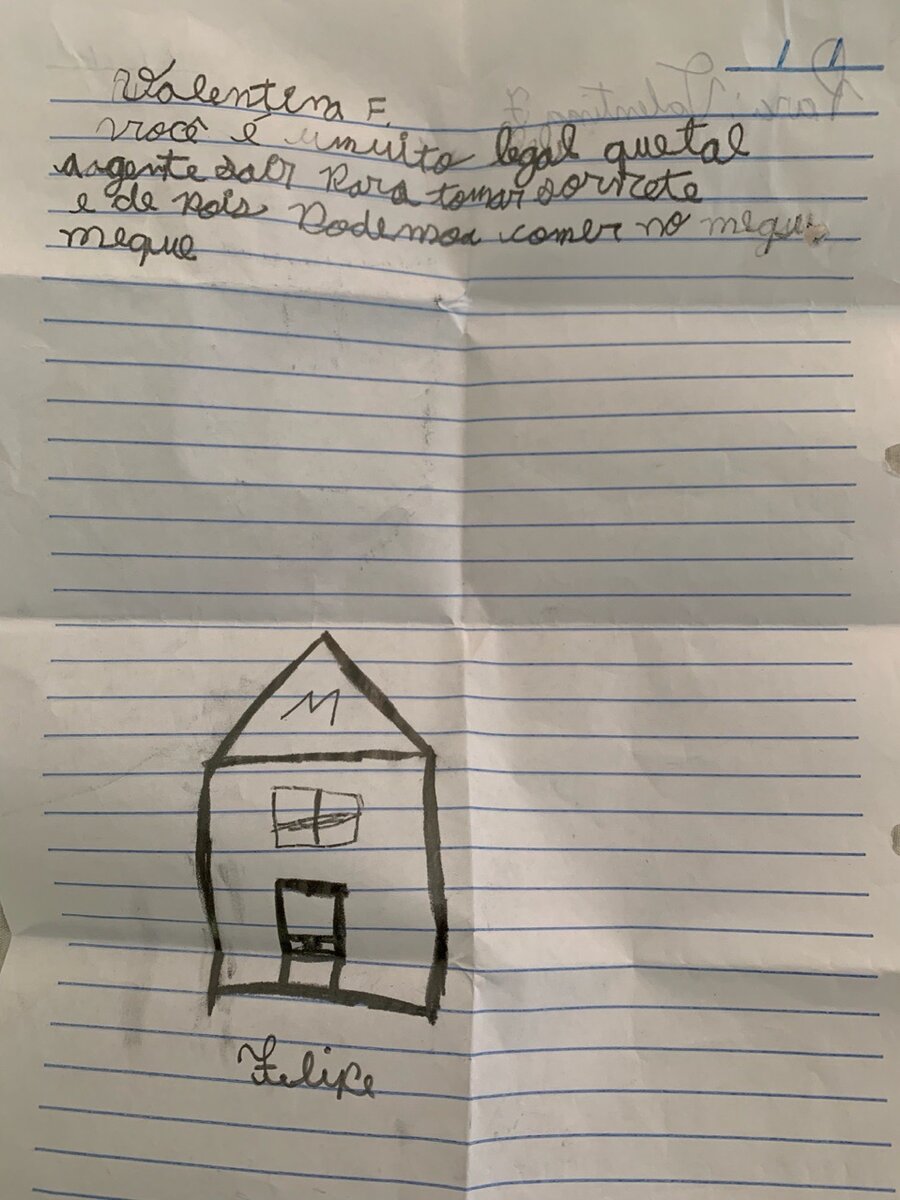 Para: Valentina F.
Valentina F.
você é umuito legal quetal
agente sair para tomar sorvete
e de pois Podemos comer no meque
meque
M
Felipe